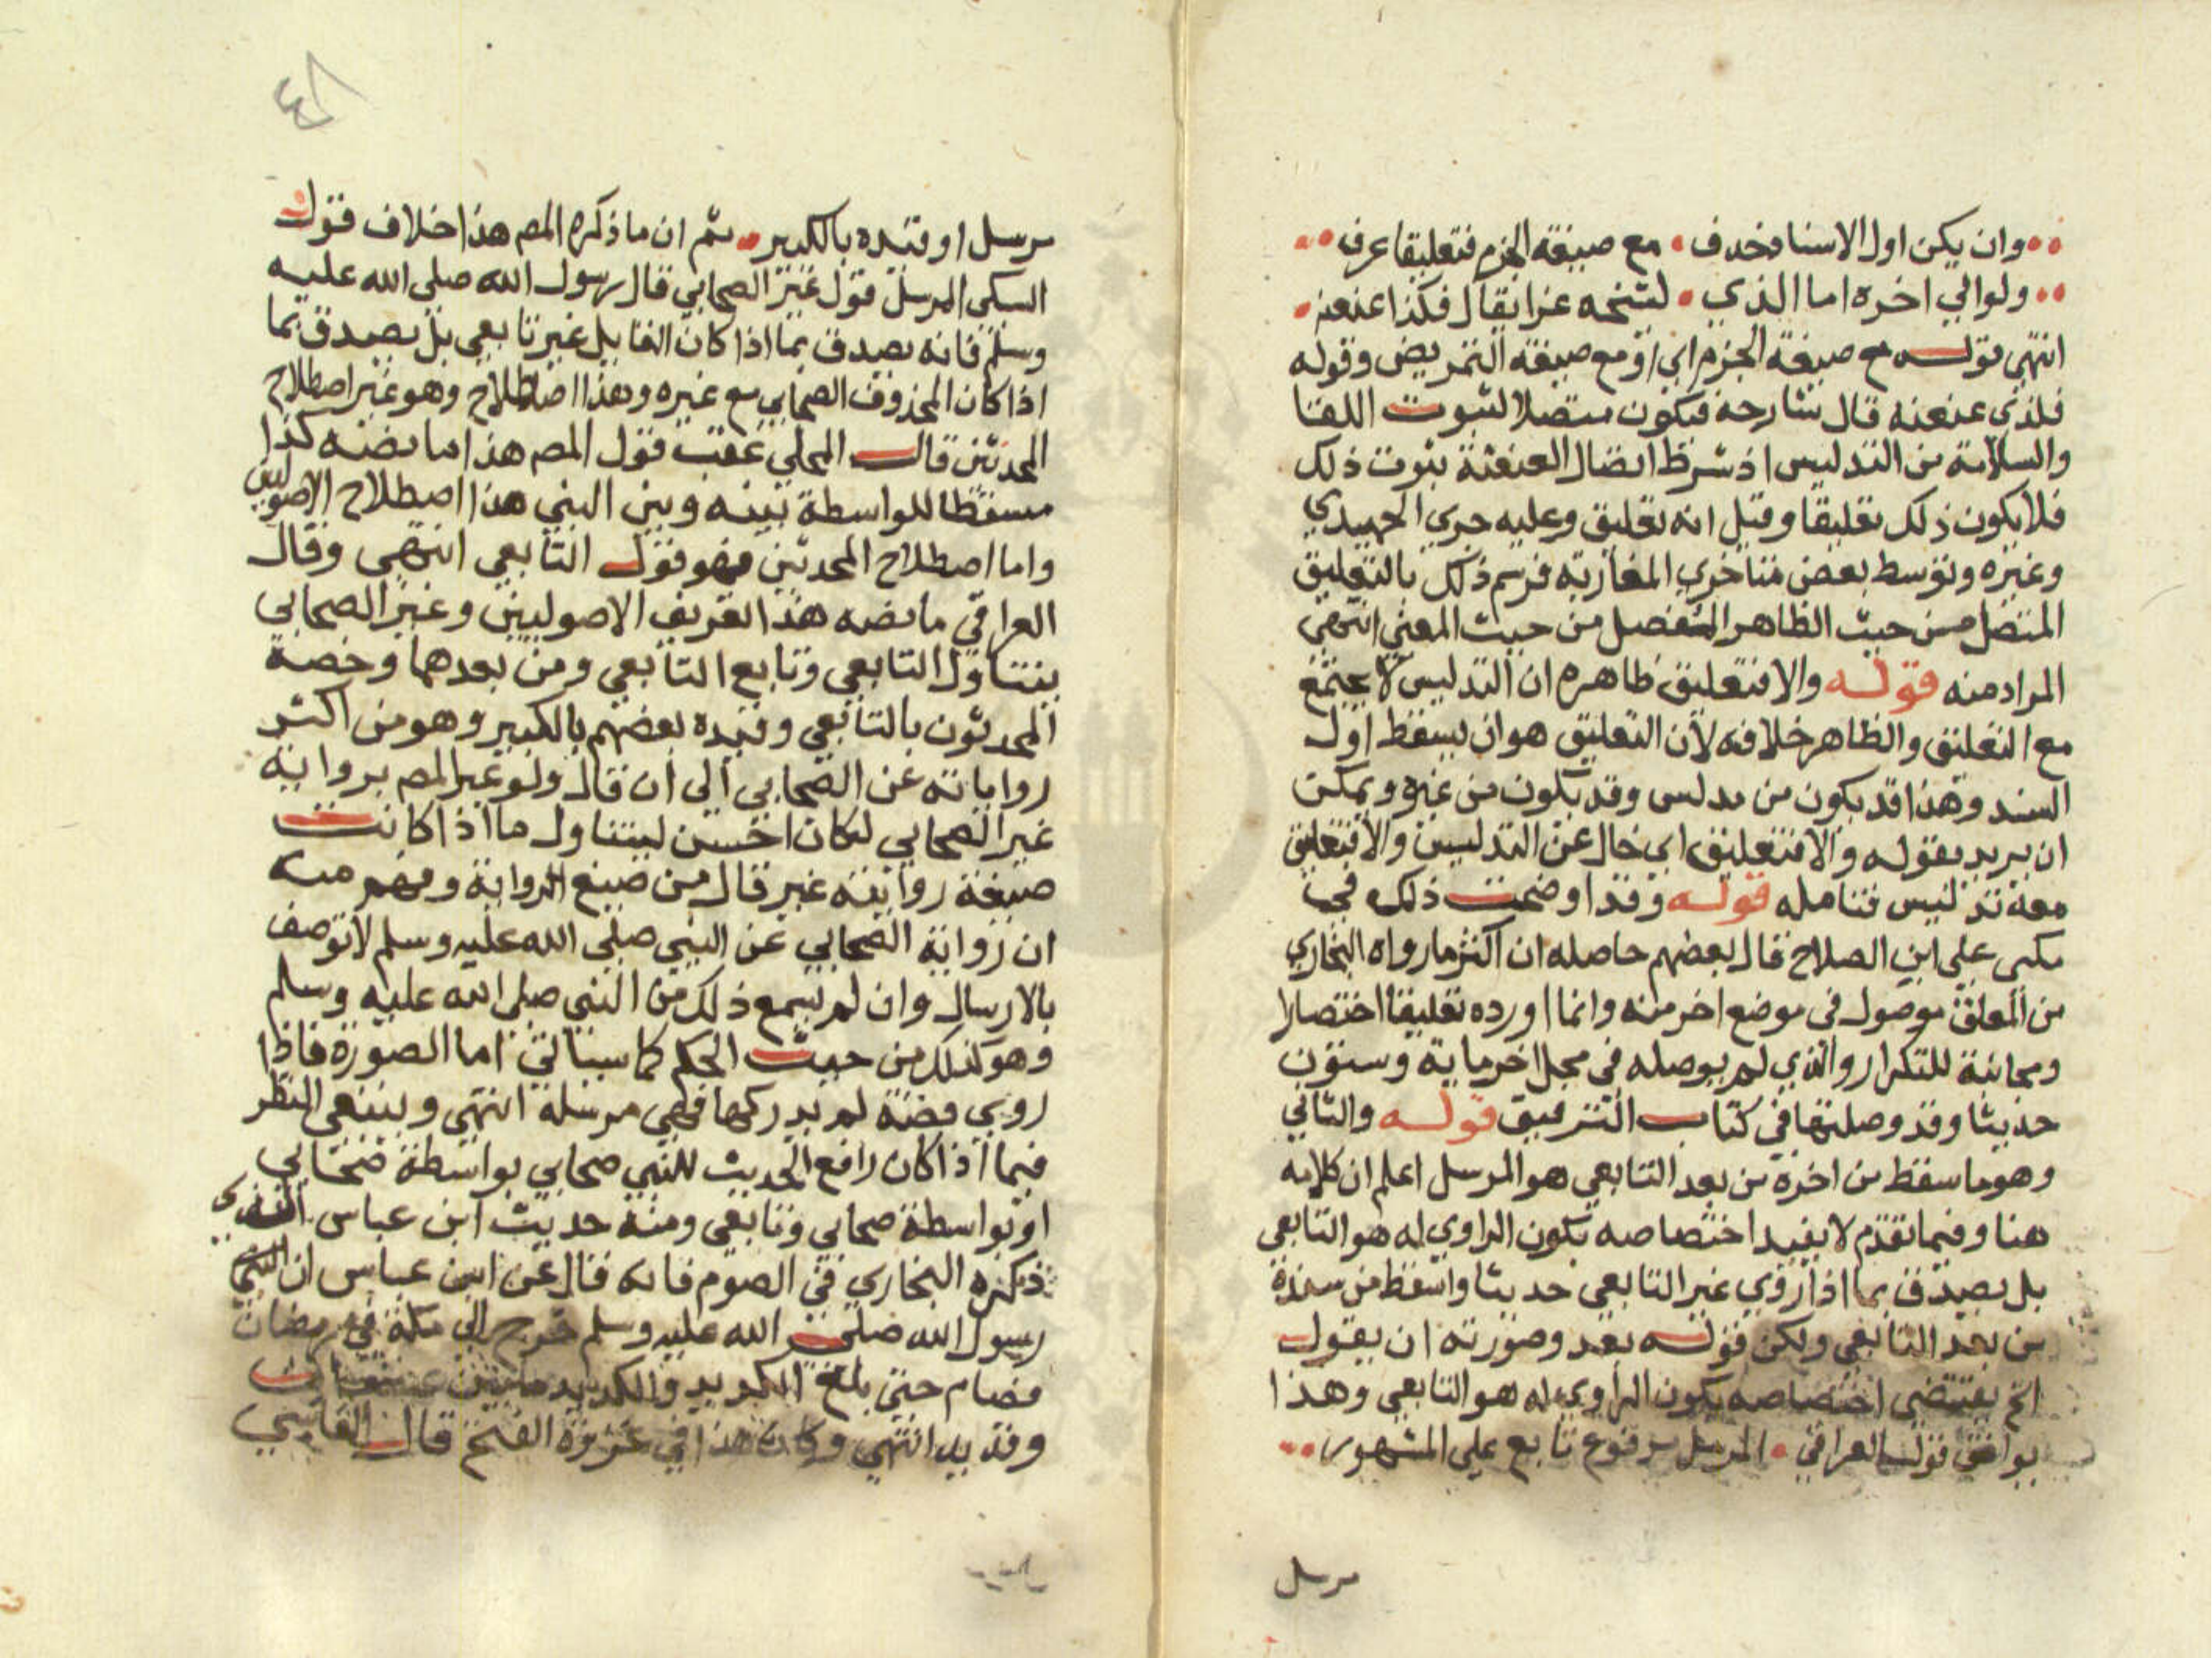 وان يكن اول الاسناد حذف • مع صيغة الجزم فتعليقا عرف
ولو الي اخره اما الذي • لشيخه عزا بقال فكذا عنعنه
انتهى قوله مع صيغة الجزم اي او مع صيغة التمريض وقوله
فلذى عنعنه قال شارحه فيكون متصلا لثبوت اللقا
والسلامة من التدليس اذ شرط اتصال العنعنة ثبوت ذلك
فلا يكون ذلك تعليقا وقيل انه تعليق وعليه جرى الحميدي
وغيره وتوسط بعض متاخري المغاربة فرسم ذلك بالتعليق
المتصل من حيث الظاهر المنفصل من حيث المعني انتهى
المراد منه قوله والا فتعليق ظاهره ان التدليس لا يجتمع
مع التعليق والظاهر خلافه لان التعليق هو ان يسقط اول
السند وهذا قد يكون من مدلس وقد يكون من غيره ويمكن
ان يريد بقوله والا فتعليق اي خال عن التدليس والا فتعليق
معه تدليس فتامله قوله وقد اوضحت ذلك في
نكتي على ابن الصلاح قال بعضهم حاصله ان اكثر ما رواه البخاري
من المعلق موصول في موضع اخر منه وانما اورده تعليقا اختصارا
ومجانبة للتكرار والذي لم يوصله في محل اخر ماية وستون
حديثا وقد وصلتها في كتاب التوفيق قوله والثاني
وهو ما سقط من اخره من بعد التابعي هو المرسل اعلم ان كلامه
هنا وفيما تقدم لا يفيد اختصاصه بكون الراوي له هو التابعي
بل يصدق بما اذا روي غير التابعي حديثا واسقط من سنده
من بعد التابعي ولكن قوله بعد وصورته ان يقول
الخ يقتضي اختصاصه بكون الراوي له هو التابعي وهذا
يوافق قول العراقي • المرسل مرفوع تابع على المشهور
مرسل
مرسل او قيده بالكبير • ثم ان ما ذكره المص هذا خلاف قول
السبكي المرسل قول غير الصحابي قال رسول الله صلى الله عليه
وسلم فانه يصدق بما اذا كان القايل غير تابعي بل يصدق بما
اذا كان المحذوف الصحابي مع غيره وهذا اصطلاح وهو غير اصطلاح
المحدثين قال المحلي عقب قول المص هذا ما نصه كذا
مسقطا للواسطة بينه وبين النبي هذا اصطلاح الاصوليين
واما اصطلاح المحدثين فهو قول التابعي انتهى وقال
العراقي ما نصه هذا تعريف الاصوليين وغير الصحابي
يتناول التابعي وتابع التابعي ومن بعدهما وخصه
المحدثون بالتابعي وقيده بعضهم بالكبير وهو من اكثر
رواياته عن الصحابي الى ان قال ولو عبر المص برواية
غير الصحابي لكان احسن ليتناول ما اذا كانت
صيغة روايته غير قال من صيغ الرواية وفهم منه
ان رواية الصحابي عن النبي صلى الله عليه وسلم لا توصف
بالارسال وان لم يسمع ذلك من النبي صلى الله عليه وسلم
وهو كذلك من حيث الحكم كما سياتي اما الصورة فاذا
روي قصة لم يدركها فهي مرسلة انتهى وينبغي النظر
فيما اذا كان رافع الحديث للنبي صحابي بواسطة صحابي
او بواسطة صحابي وتابعي ومنه حديث ابن عباس الذي
ذكره البخاري في الصوم فانه قال عن ابن عباس ان
رسول الله صلى الله عليه وسلم خرج الى مكة في رمضان
فصام حتى بلغ الكديد والكديد ما بين عسفان
وقديد انتهى وكان هذا في غزوة الفتح قال القابسي